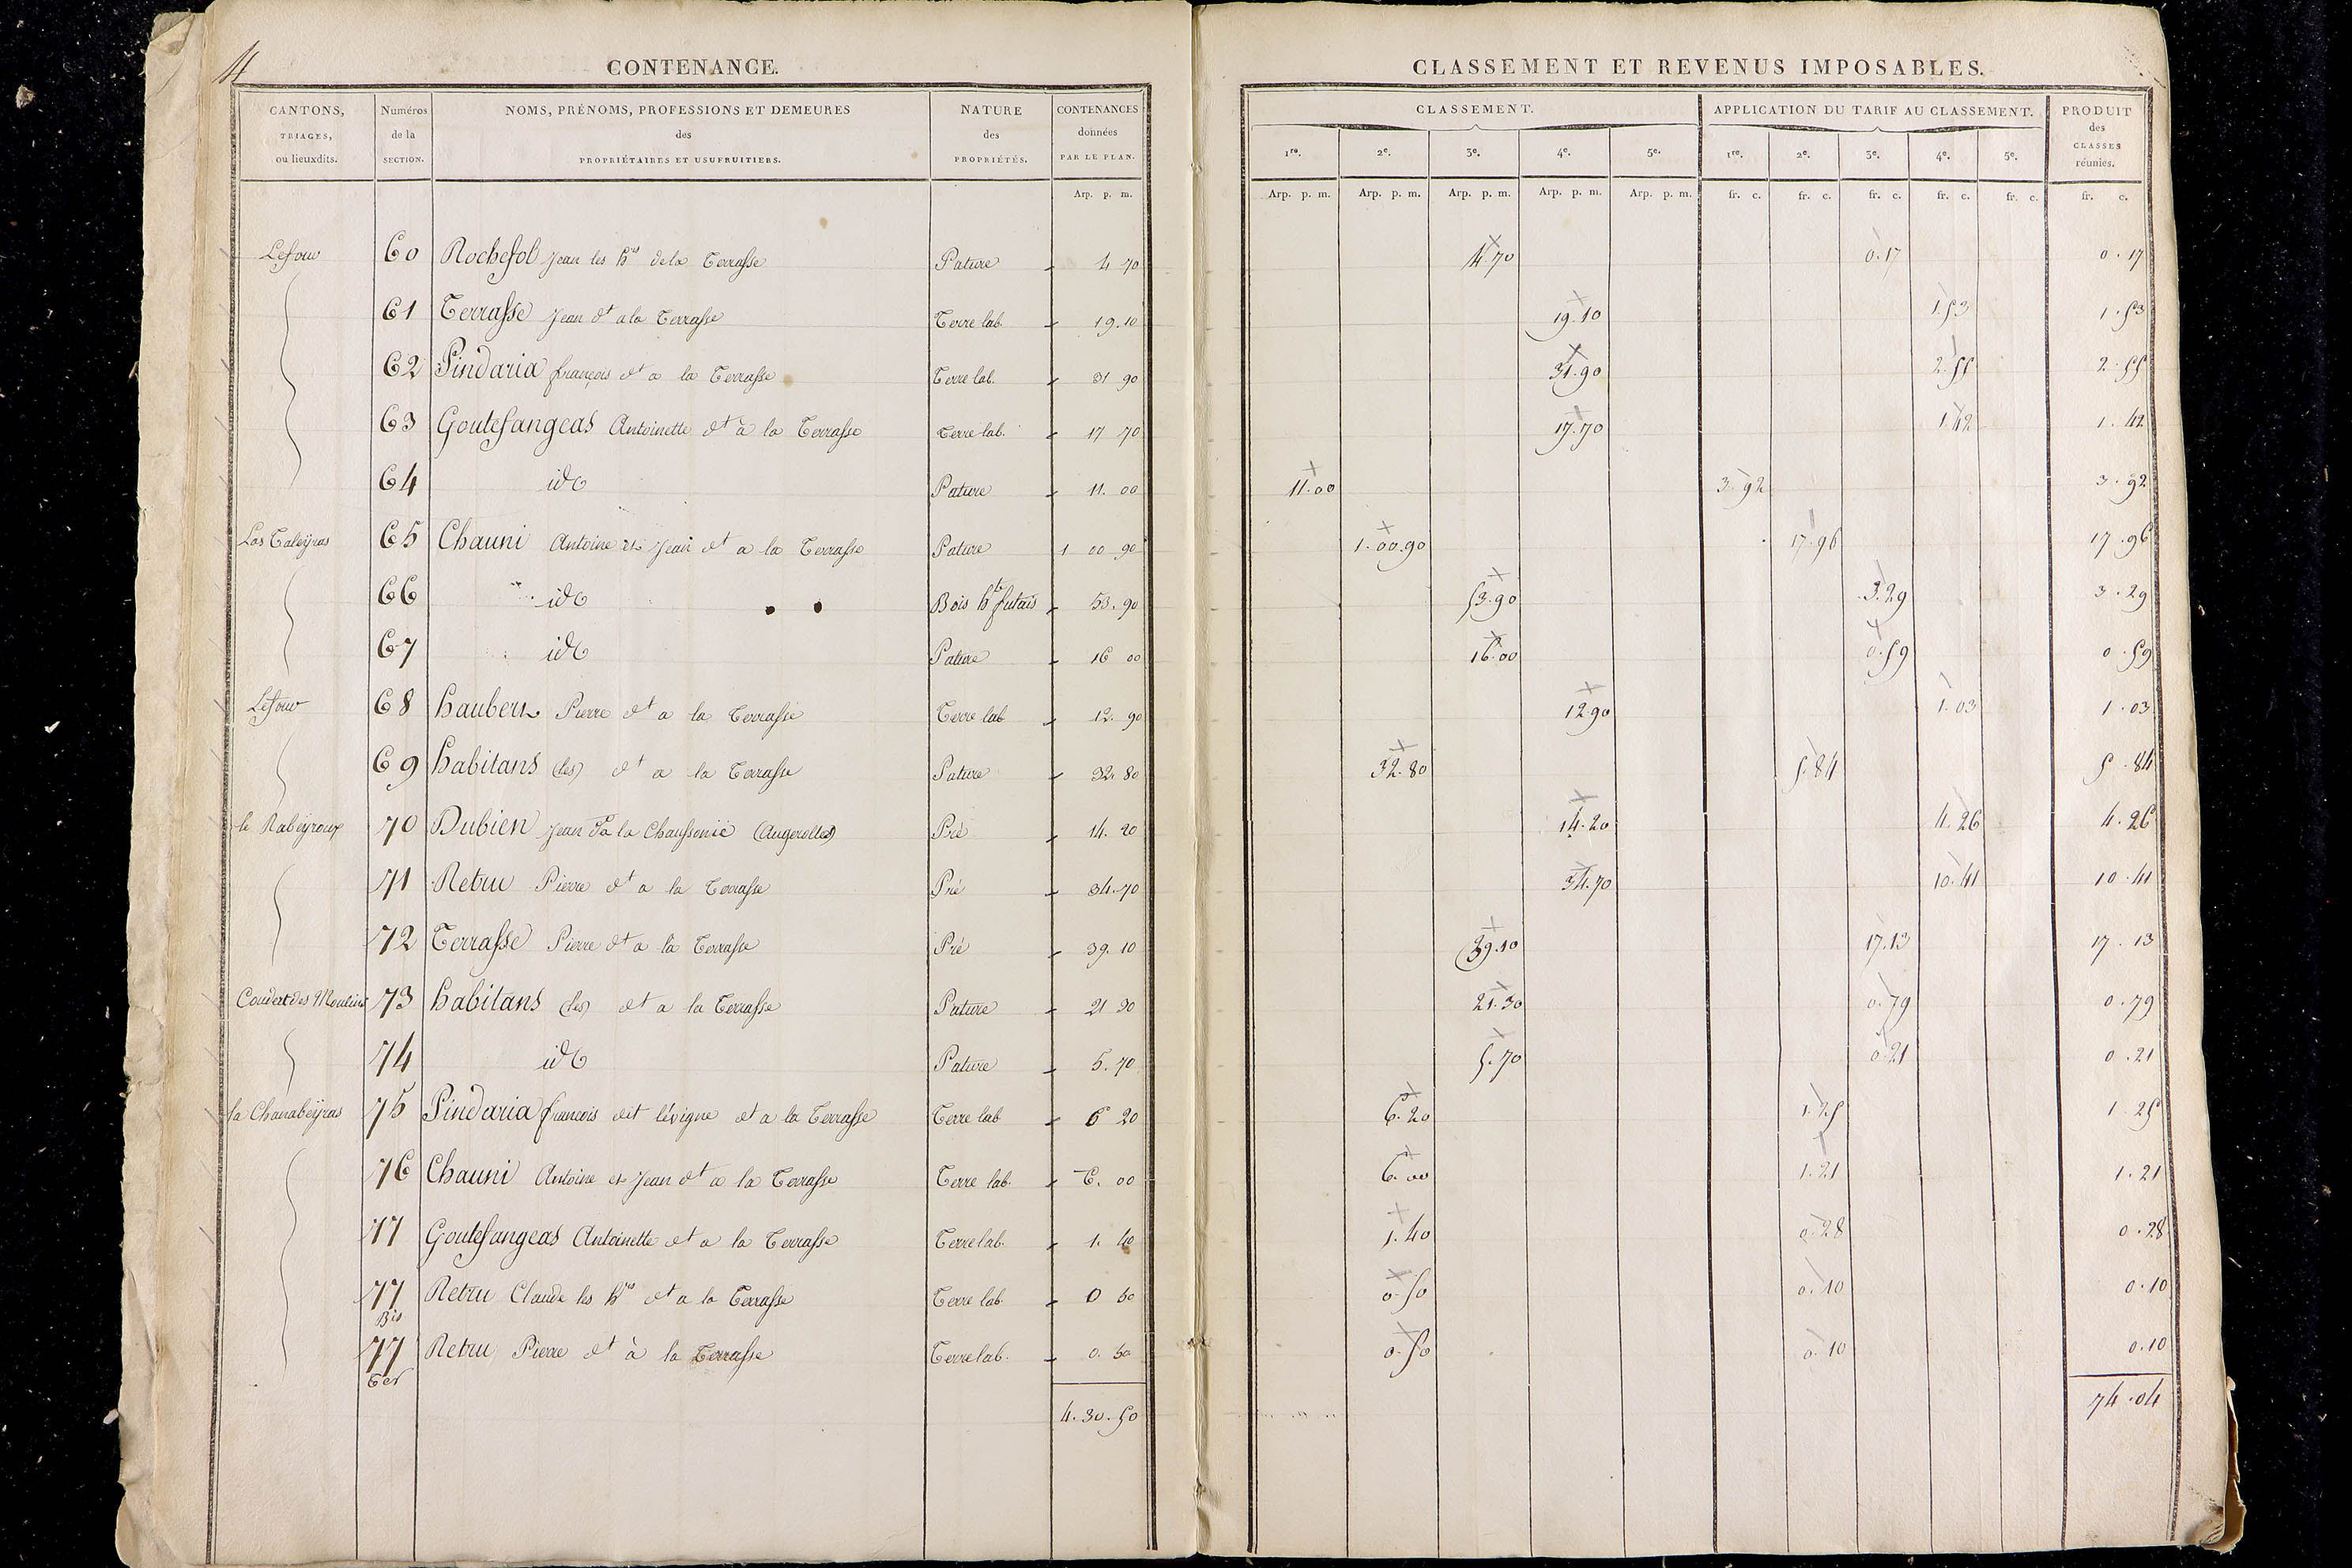 4
CONTENANCE.
CLASSEMENT ET REVENUS IMPOSABLES.
CANTONS, TRIAGES, ou lieuxdits. Numéros de la SECTION. NOMS, PRÉNOMS, PROFESSIONS ET DEMEURES des PROPRIÉTAIRES ET USUFRUITIERS. NATURE des PROPRIÉTÉS. CONTENANCES données PAR LE PLAN. CLASSEMENT. APPLICATION DU TARIF AU CLASSEMENT. PRODUIT des CLASSES réunies.
1re. 2e. 3e. 4e. 5e. 1re. 2e. 3e. 4e. 5e.
Arp. p. m. Arp. p. m. Arp. p. m. Arp. p. m. Arp. p. m. Arp. p. m. fr. c. fr. c. fr. c. fr. c. fr. c. fr. c.
60 Rochefol Jean les hrs de la Terrasse Pature 4 70 4.70 0.17 0.17
61 Terrasse Jean dt a la Terrasse Terre lab. 19.10 19.10 1.53 1.53
62 Pindaria françois dt a la Terrasse Terre lab. 31 90 31.90 2.55 2.55
63 Goutefangeas Antoinette dt à la Terrasse Terre lab. 17 70 17.70 1.42 1.42
64 id Pature 11.00 11.00 3.92 3.92
Las Taleÿras 65 Chauni Antoine et Jean dt a la Terrasse Pature 1 00 90 1.00.90 17.96 17.96
66 id Bois hte futais 53.90 53.90 3.29 3.29
67 id Pature 16 00 16.00 0.59 0.59
68 Pierre dt a la Terrasse Terre lab 12.90 12.90 1.03 1.03
69 habitans (les) dt a la Terrasse Pature 32.80 32.80 5.84 5.84
le Rabeÿroux 70 Dubien Jean a la Chaussonie (Augerolles) Pré 14.20 14.20 4.26 4.26
71 Retru Pierre dt a la Terrasse Pré 34.70 34.70 10.41 10.41
72 Terrasse Pierre dt a la Terrasse Pré 39.10 39.10 17.13 17.13
Coudert des Moulins 73 habitans (les) dt a la Terrasse Pature 21 30 21.30 0.79 0.79
74 id Pature 5.70 5.70 0.21 0.21
la Chanabeÿras 75 Pindaria francois dit lévigne dt a la Terrasse Terre lab 6 20 6.20 1.25 1.25
76 Chauni Antoine et Jean dt a la Terrasse Terre lab. 6.00 6.00 1.21 1.21
77 Goutefangeas Antoinette dt a la Terrasse Terre lab. 1.40 1.40 0.28 0.28
77 Bis Retru Claude les hrs dt a la Terrasse Terre lab. 0 50 0.50 0.10 0.10
77 Ter Retru Pierre dt à la Terrasse Terre lab. 0.50 0.50 0.10 0.10
4.30.50 74.04